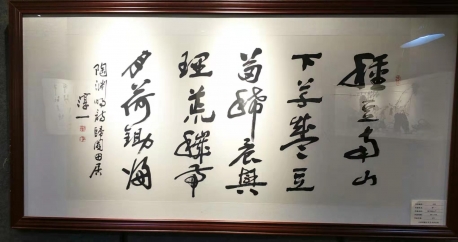 種豆南山
下草盛豆
苗稀晨興
理荒穢帶
月荷鋤歸
陶淵明詩歸園田居
淳一